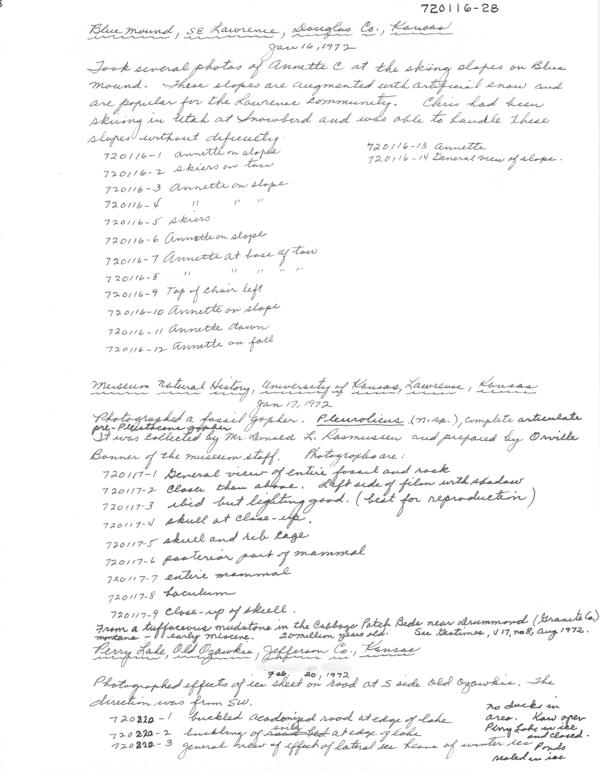 720116-28
Blue Mound, SE Lawrence, Douglas Co., Kansas
Jan 16, 1972
Took several photos of Annette C at the skiing slopes on Blue
Mound. These slopes are augmented with artificial snow and
are popular for the Lawrence community. Chris had been
skiing in Utah at Snowbird and was able to handle these
slopes without dificulty.
720116-1 Annette on slope
720116-2 skiers on tow
720116-3 Annette on slope
720116-4 " " "
720116-5 skiers
720116-6 Annette on slope
720116-7 Annette at base of tow
720116-8 " " " " "
720116-9 Top of chair left
720116-10 Annette on slope
720116-11 Annette down
720116-12 Annette on fall
720116-13 Annette
720116-14 General view of slope.
Museum Natural History, University of Kansas, Lawrence, Kansas
Jan 17, 1972
Photographed a fossil gopher. Pleurolicus (n. sp.), complete articulate
pre-Pleistocene gopher
It was collected by Mr. Donald L. Rasmussen and prepared by Orville
Bonner of the museum staff. Photographs are:
720117-1 General view of entire fossil and rock
720117-2 Closer than above. Left side of film with shadow
720117-3 ibid but lighting good. (best for reproduction)
720117-4 skull at close-up.
720117-5 skull and rib cage
720117-6 posterior part of mammal
720117-7 entire mammal
720117-8 baculum
720117-9 close-up of skull.
From a tuffaceous mudstone in the Cabbage Patch Beds near Drummond (Granite Co.)
Montana - early Miocene. 20 million years old. See Geotimes, V 17, no 8, Aug 1972.
Perry Lake, Old Ozawkie, Jefferson Co., Kansas
Feb. 20, 1972
Photographed effects of ice sheet on road at S side Old Ozawkie. The
direction was from SW.
720220-1 buckled road at edge of lake
720220-2 buckling of at edge of lake
720220-3 general view of effect of lateral ice heave of winter ice
no ducks in
area. Kaw open
Perry Lake in ice
and closed.
Ponds
sealed in ice